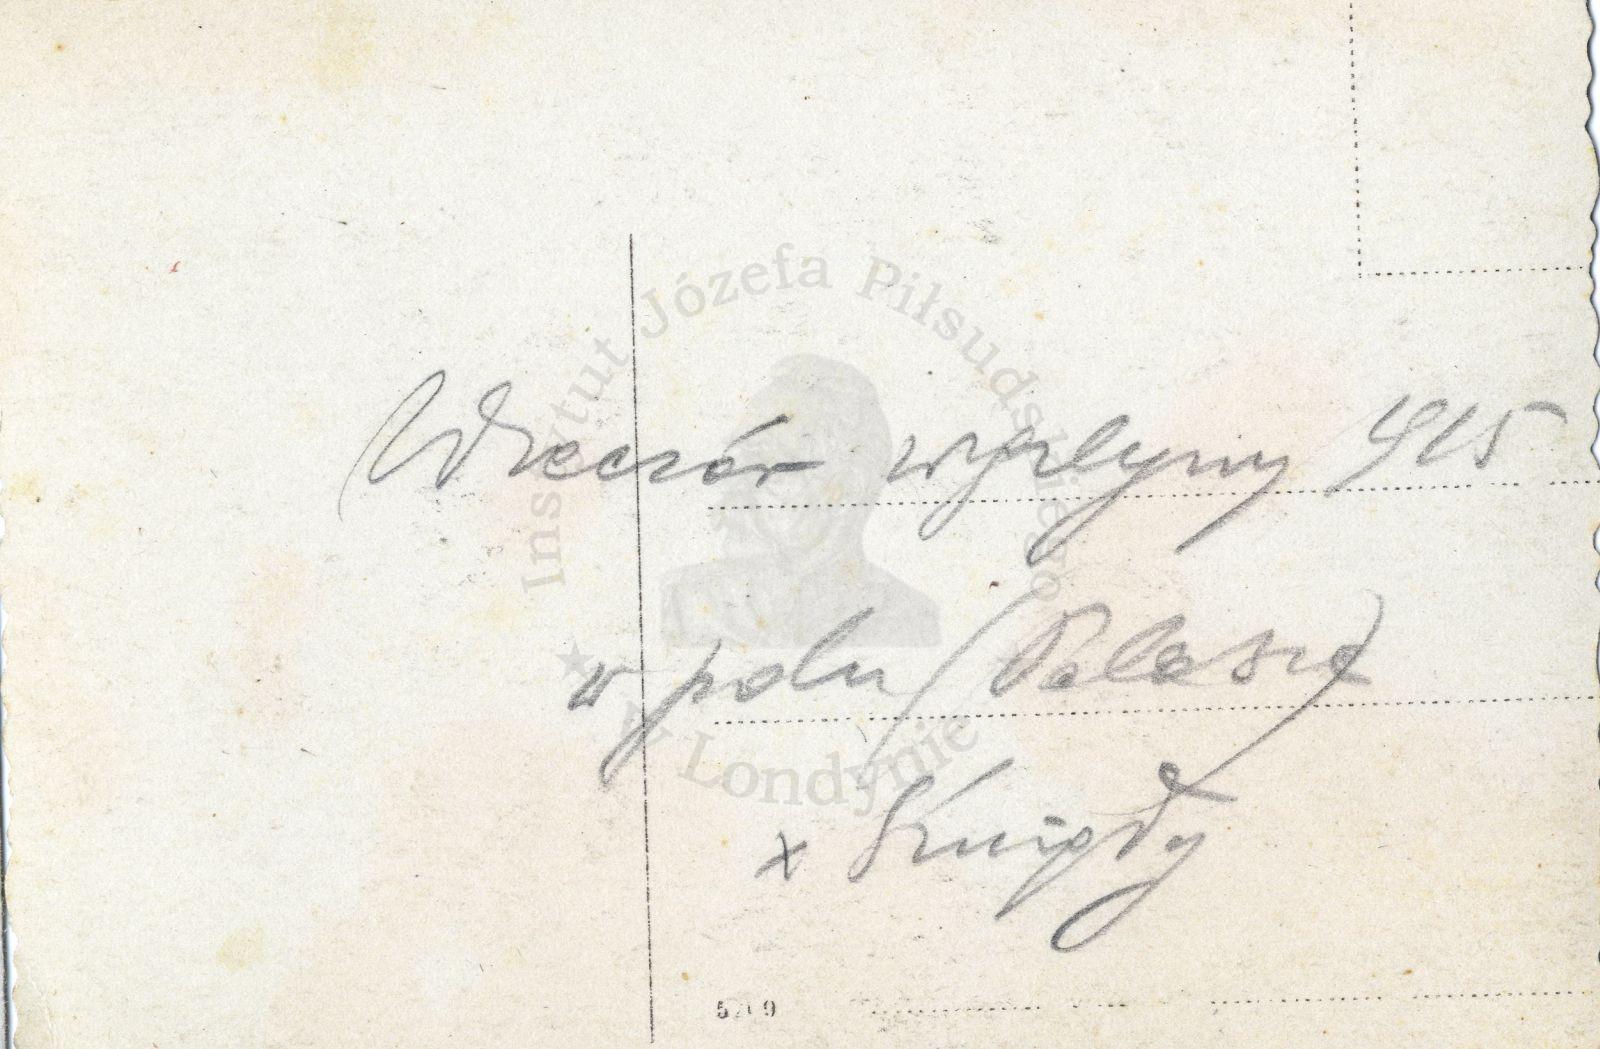 Instytut Józefa Piłsudskiego
w Londynie
Wieczór wigilijny 915
w polu (Polesie)
x Śmigły
5709